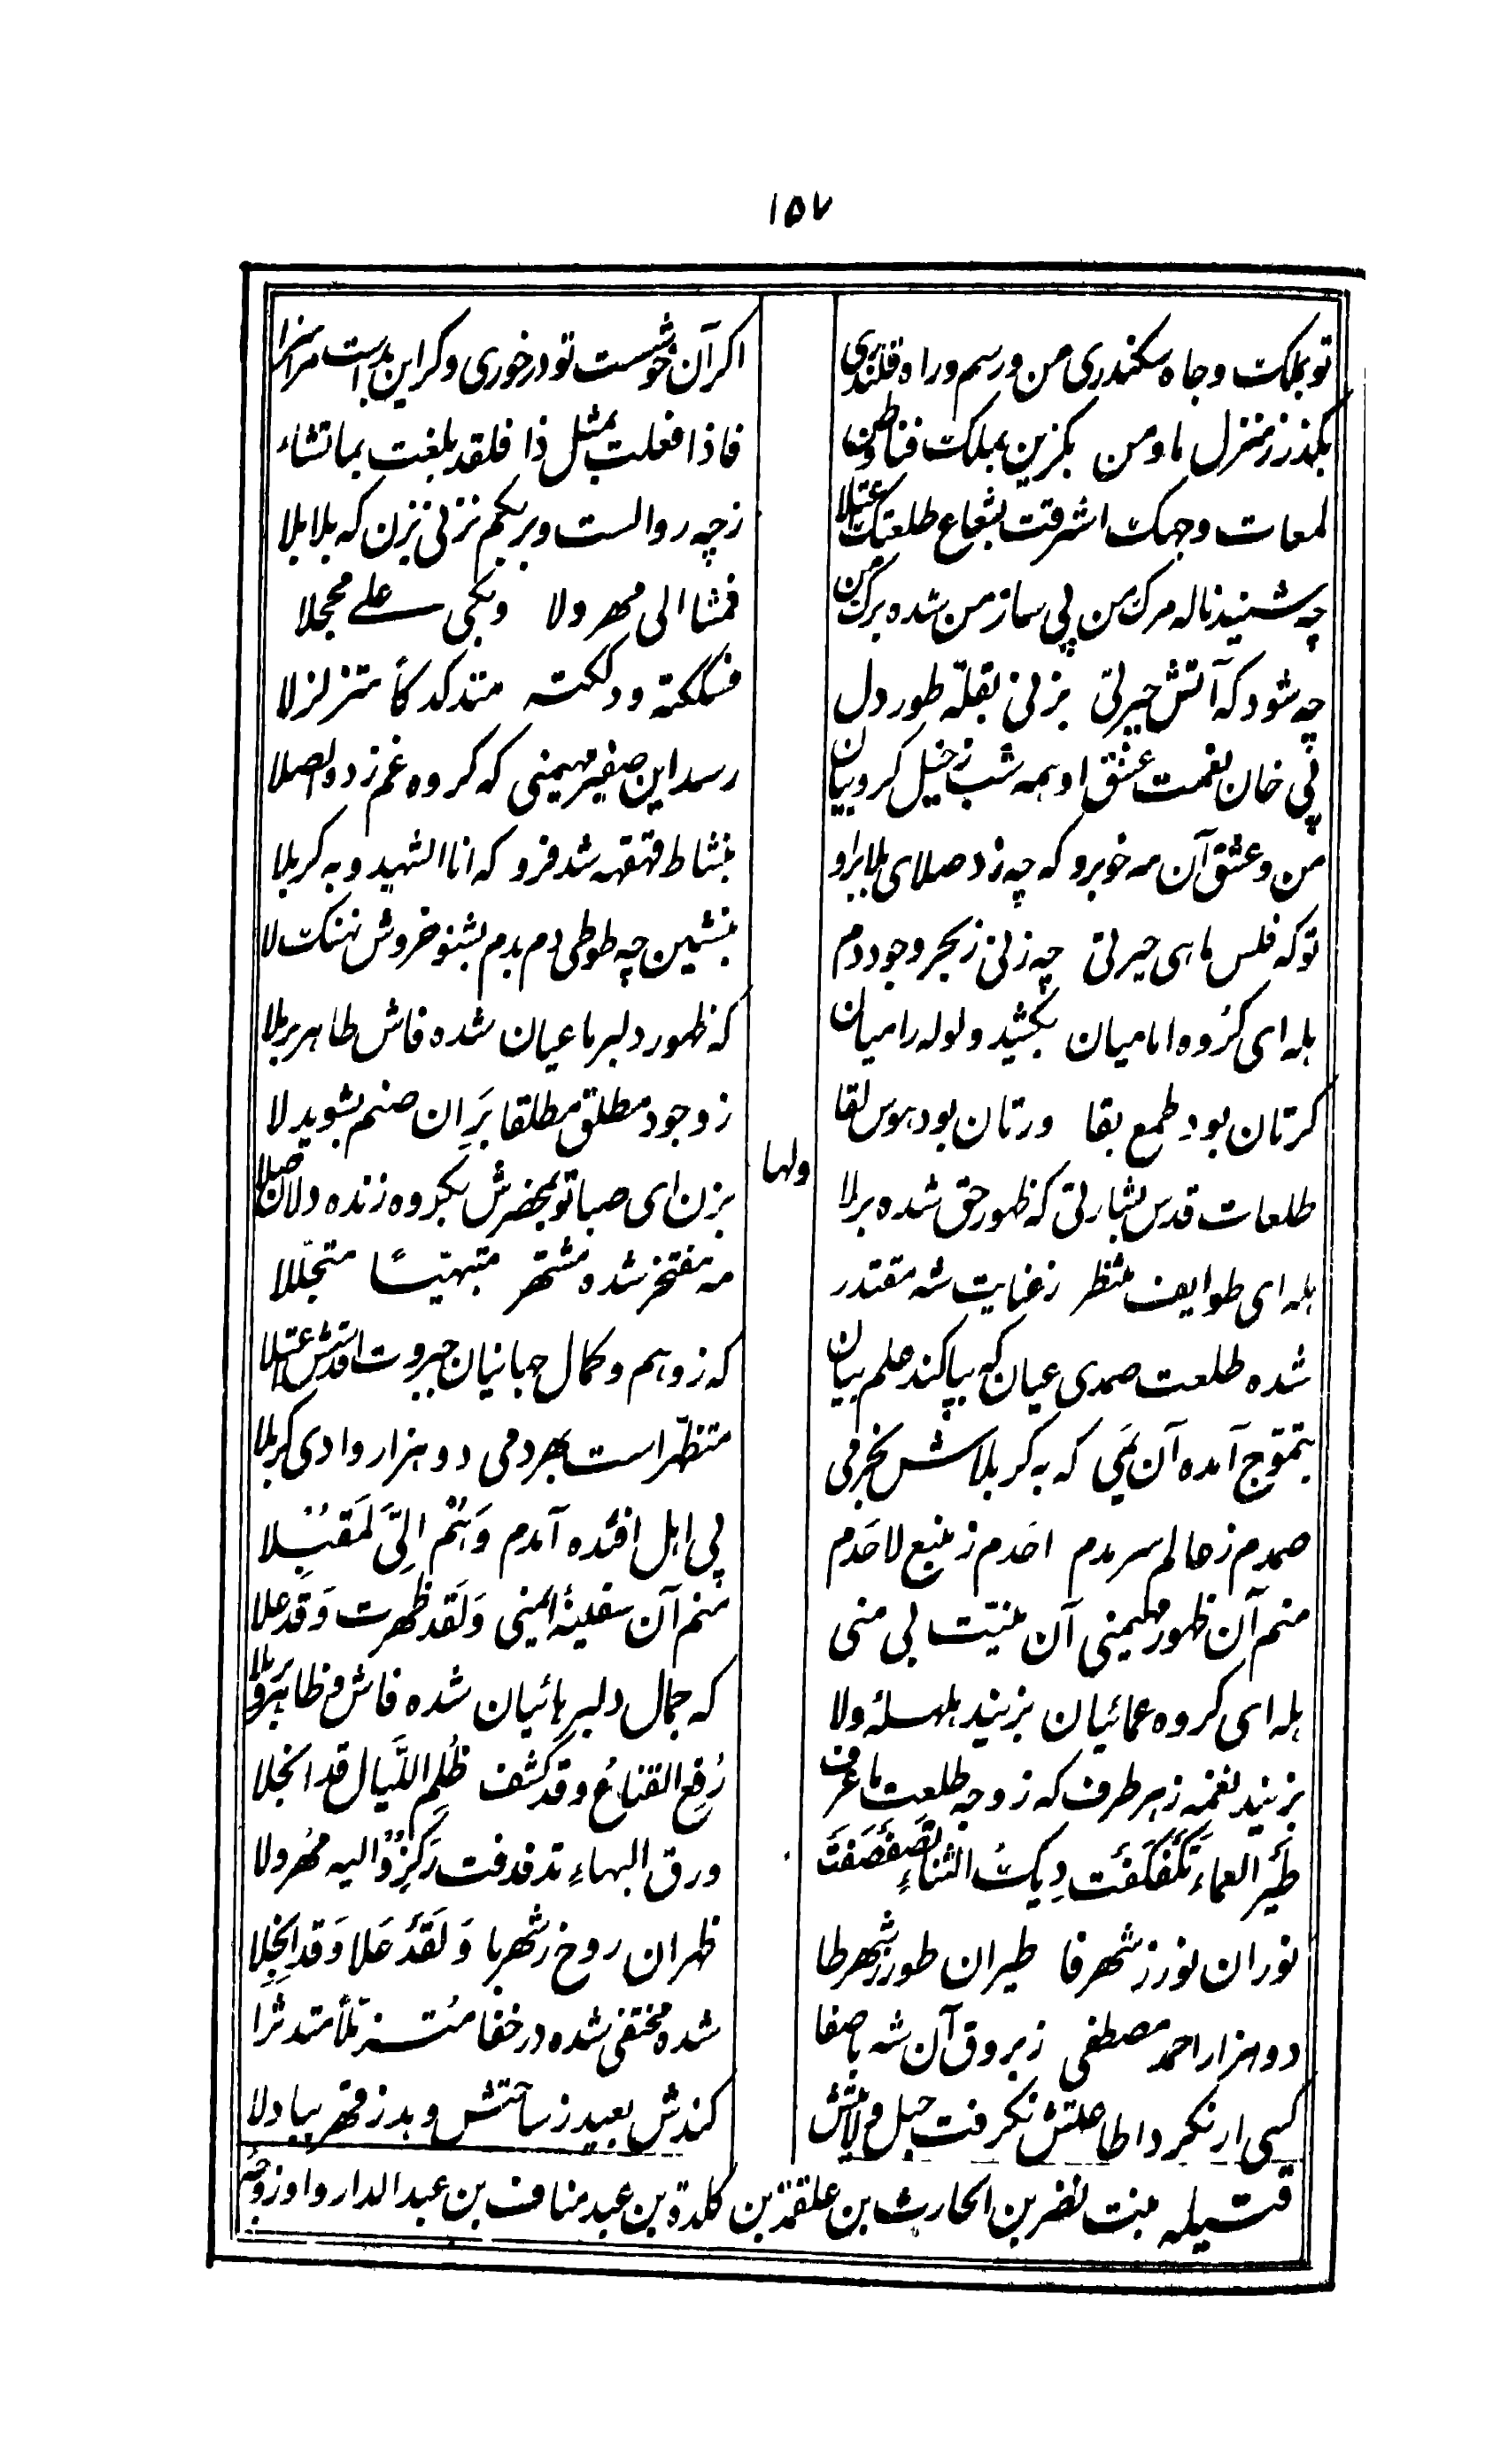 ١٥٧
تو بملک وجاه سکندری من ورسم وراه قلندری اکر آن خوشست تو درخوری وکر این بدست مرا سزا
بکذر ز منزل ما ومن بکزین بملک فنا وطن فاذا فعلت بمثل ذا فلقد بلغت بما تشاء
لمعات وجهک اشرقت بشعاع طلعتک اعتلا زچه رو الست وبربکم نزنی بزن که بلا بلا
چه شنید ناله مرک من پی ساز من شده برک من فمشا الی مهرولا وبکی علے مجلجلا
چه شود که آتش حیرتی بزنی بقلّه طور دل فسککته ودککته متدکدکاً متزلزلا
پی خان نعمت عشق او همه شب زخیل کروبیان رسد این صفیر مهیمنی که کروه غم زده الصلا
من وعشق آن مه خوبرو که چه زد صلای بلا براو بنشاط قهقهه شد فرو که انا الشهید وبه کربلا
تو که فلس ماهی حیرتی چه زنی زبحر وجود دم بنشین چه طوطی دم بدم بشنو خروش نهنک لا
هله ای کروه امامیان بکشید ولوله را میان که ظهور دلبر ما عیان شده فاش ظاهر برملا
کرتان بود طمع بقا ورتان بود هوس لقا زوجود مطلق مطلقا بَرَ ان صنم بشوید لا
ولها
طلعات قدس بشارتی که ظهور حق شده برملا بزن ای صبا تو بمحضرش بکروه زنده دلان صلا
هله ای طوایف منتظر زعنایت شه مقتدر مه مفتخر شده مشتهر متبهیّاً متجلّلا
شده طلعت صمدی عیان که بپا کند علم بیان که زوهم وکمال جهانیان جبروت اقدسش اعتلا
بتموّج آمده آن یمی که به کربلاش بخرمی متظهّر است بهر دمی دو هزار وادی کربلا
صمدم زعالم سرمدم احدم زمنبع لاحدم پی اهل افئده آمدم وَهُمُ اِلیَّ لَمُقبلا
منم آن ظهور مهیمنی آن منیّت بی منی منم آن سفینهٔ ایمنی وَلَقد ظهرت وَقَد علا
هله ای کروه عمائیان بزنید هلهلهٔ ولا که جمال دلبر بهائیان شده فاش وظاهر وبرملا
بزنید نغمه زهر طرف که زوجه طلعت ما عرف رُفِعَ القناعُ وقد کشف ظُلم اللّیال قد انجلا
طَیر العماءِ تَکَفکَفَت دِیکُ الثناءِ تَصَفصَفَت ورق البهاءِ تدفدفت رَکِزوُا الیه مُهرولا
نوران نور زشهر فا طیران طور زشهر طا ظهران روح زشهر ها وَلَقَد عَلا وَقَد اِنجلا
دو هزار احمد مصطفی زبروق آن شه باصفا شده مختفی شده در خفا متزمّلاً متدثرا
کسی ار نکرد اطاعتش نکرفت حبل ولایتش کندش بعید زساحتش وبدر زقهر بباد لا
قتیله بنت نضر بن الحارث بن علقمة بن کلدة بن عبد مناف بن عبد الدار واو زوجه